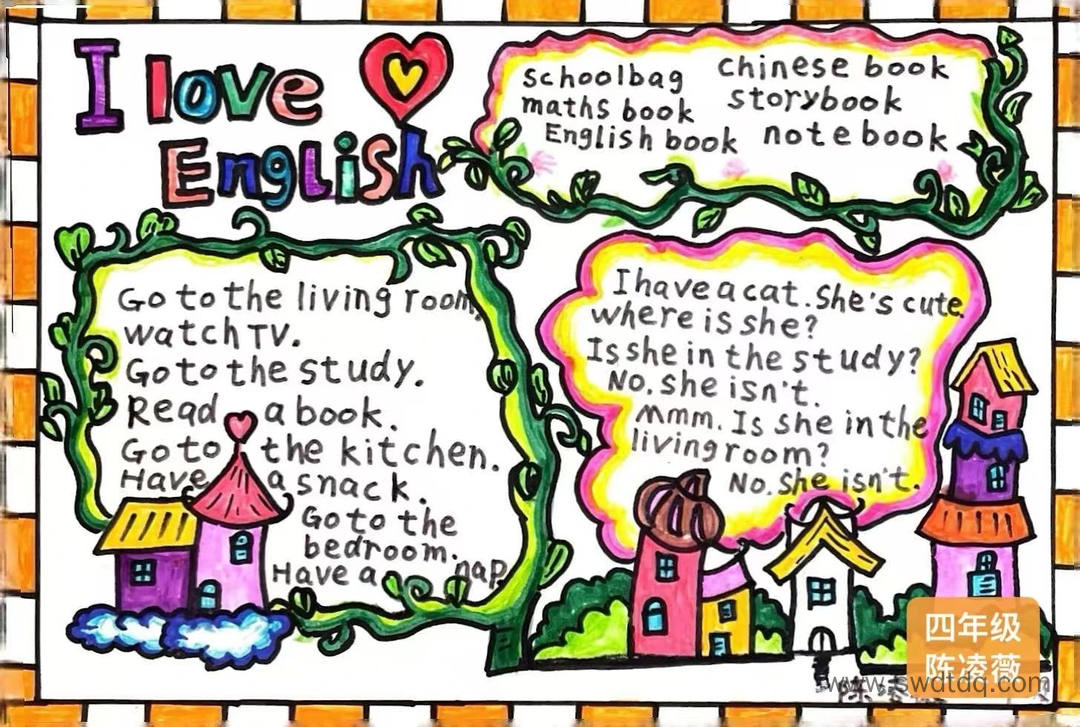 I love
English
schoolbag
maths book
English book
Chinese book
storybook
notebook
Go to the living room.
watch TV.
Go to the study.
Read a book.
Go to the kitchen.
Have a snack.
Go to the
bedroom.
Have a nap.
I have a cat. She's cute.
where is she?
Is she in the study?
No. she isn't.
Mmm. Is she in the
living room?
No. She isn't.
四年级
陈凌薇
www.swdtdq.com